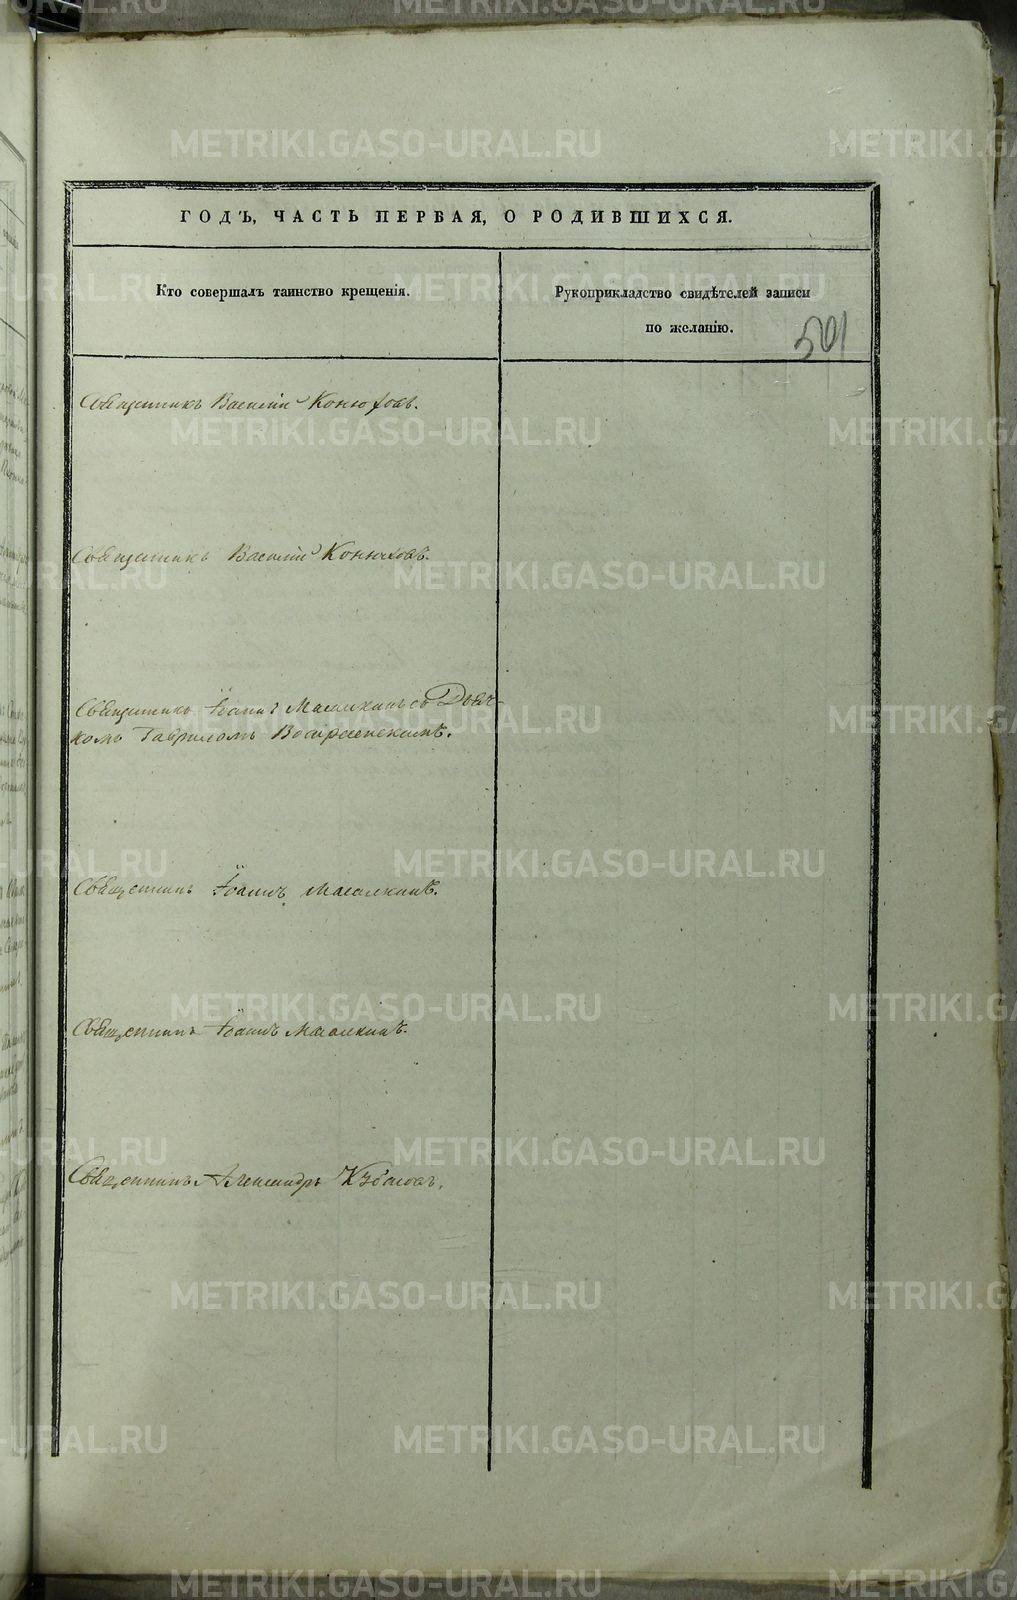 ГОДЪ, ЧАСТЬ ПЕРВАЯ, О РОДИВШИХСЯ.
Кто совершалъ таинство крещенія.
Рукоприкладство свидѣтелей записи
по желанію.
501
Священникъ Василій Конюховъ.
Священникъ Василій Конюховъ.
Священникъ Іоаннъ Масалкинъ съ Дьяч-
комъ Гавриломъ Воскресенскимъ.
Священникъ Іоаннъ Масалкинъ.
Священникъ Іоаннъ Масалкинъ.
Священникъ Александръ
METRIKI.GASO-URAL.RU